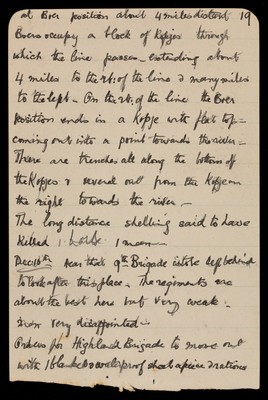 at Boer position about 4 miles distant 19
Boers occupy a block of Kopjes through
which the line passes extending about
4 miles to the rt: of the line & many miles
to the left - On the rt: of the line the Boer
position ends in a Kopje with flat top =
coming out into a point towards the river =
There are trenches all along the bottom of
the Kopjes & several out from the Kopje on
the right towards the river -
The long distance shelling said to have
Killed 1 1 man -
Dec 10th hear that 9th Brigade is to be left behind
to look after this place. The regiments are
about the best here but very weak -
very disappointed -
Orders for Highland Brigade to move out
with 1 blanket waterproof sheet apiece 2 rations